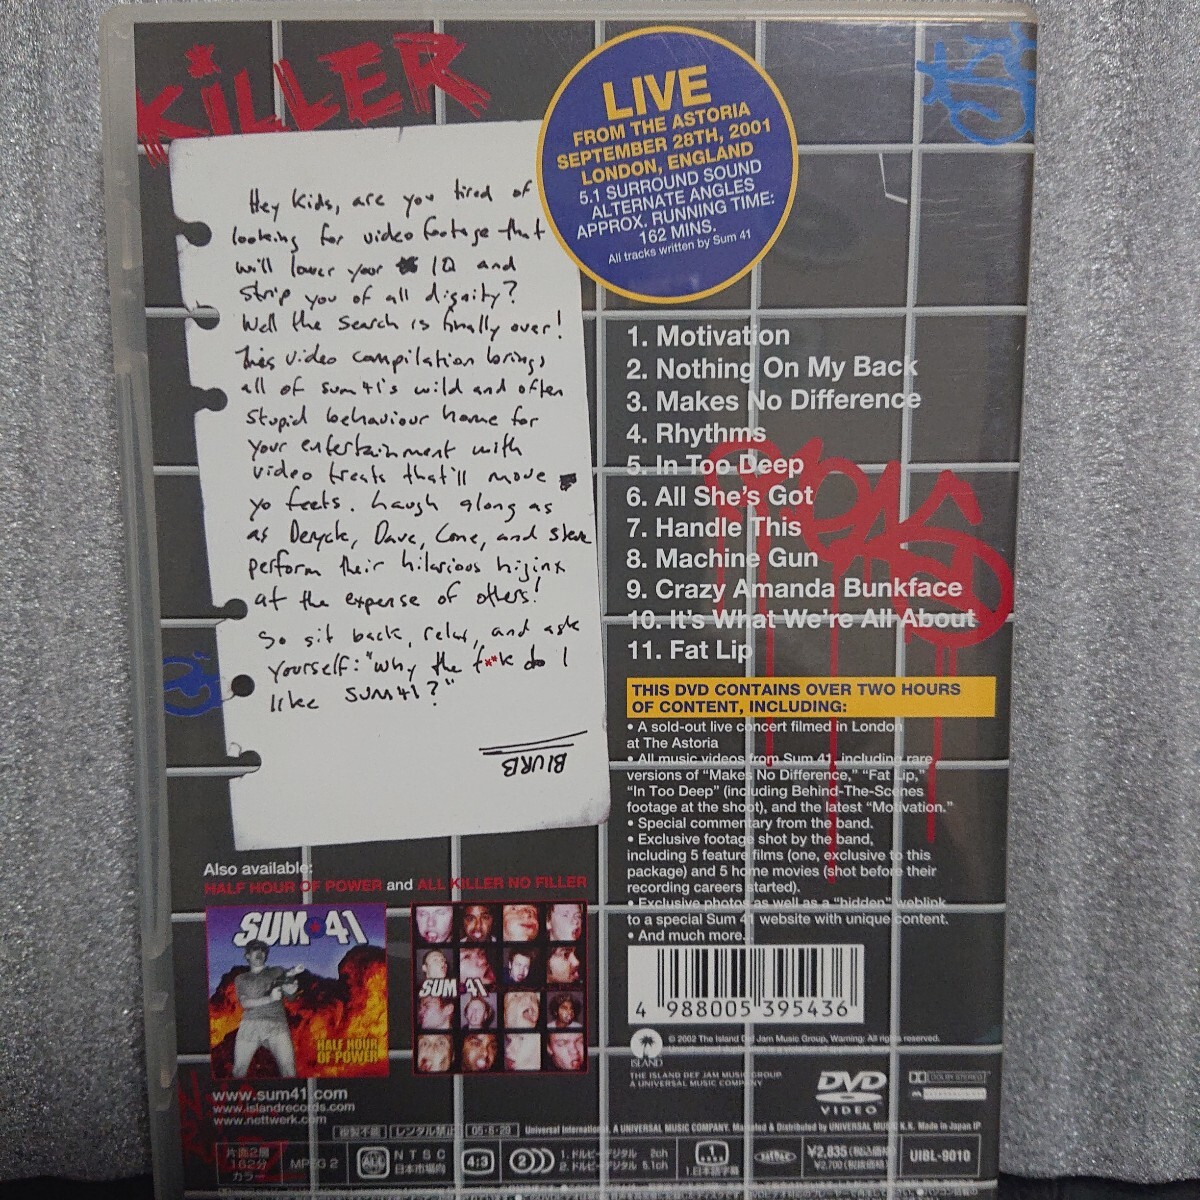 KiLLER
LIVE
FROM THE ASTORIA
SEPTEMBER 28TH, 2001
LONDON, ENGLAND
5.1 SURROUND SOUND
ALTERNATE ANGLES
APPROX. RUNNING TIME:
162 MINS.
All tracks written by Sum 41
Hey kids, are you tired of
looking for video footage that
will lower your IQ and
strip you of all dignity?
Well the search is finally over!
This video compilation brings
all of sum 41's wild and often
stupid behaviour home for
your entertainment with
video treats that'll move
yo feets. Laugh along as
as Deryck, Dave, Cone, and steve
perform their hilarious hijinx
at the expense of others!
So sit back, relax, and ask
yourself: "why the f**k do I
like SUM 41?"
BLURB
1. Motivation
2. Nothing On My Back
3. Makes No Difference
4. Rhythms
5. In Too Deep
6. All She's Got
7. Handle This
8. Machine Gun
9. Crazy Amanda Bunkface
10. It's What We're All About
11. Fat Lip
THIS DVD CONTAINS OVER TWO HOURS
OF CONTENT, INCLUDING:
• A sold-out live concert filmed in London
at The Astoria
• All music videos from Sum 41, including rare
versions of "Makes No Difference," "Fat Lip,"
"In Too Deep" (including Behind-The-Scenes
footage at the shoot), and the latest "Motivation."
• Special commentary from the band.
• Exclusive footage shot by the band,
including 5 feature films (one, exclusive to this
package) and 5 home movies (shot before their
recording careers started).
• Exclusive photos as well as a "hidden" weblink
to a special Sum 41 website with unique content.
• And much more...
Also available:
HALF HOUR OF POWER and ALL KILLER NO FILLER
SUM★41
HALF HOUR
OF POWER
SUM 41
4 988005 395436
ISLAND
© 2002 The Island Def Jam Music Group, Warning: All rights reserved.
THE ISLAND DEF JAM MUSIC GROUP
A UNIVERSAL MUSIC COMPANY
DVD
VIDEO
DOLBY STEREO
www.sum41.com
www.islandrecords.com
www.nettwerk.com
複製不能 レンタル禁止 05・6・29 Universal International, A UNIVERSAL MUSIC COMPANY. Manufactured & Distributed by UNIVERSAL MUSIC K.K. Made in Japan
片面2層
162分
カラー
MPEG 2
ALL
NTSC
日本市場向
4:3
2
1. ドルビーデジタル 2ch
2. ドルビーデジタル 5.1ch
1.日本語字幕
¥2,835(税込価格)
¥2,700(税抜価格)
UIBL-9010